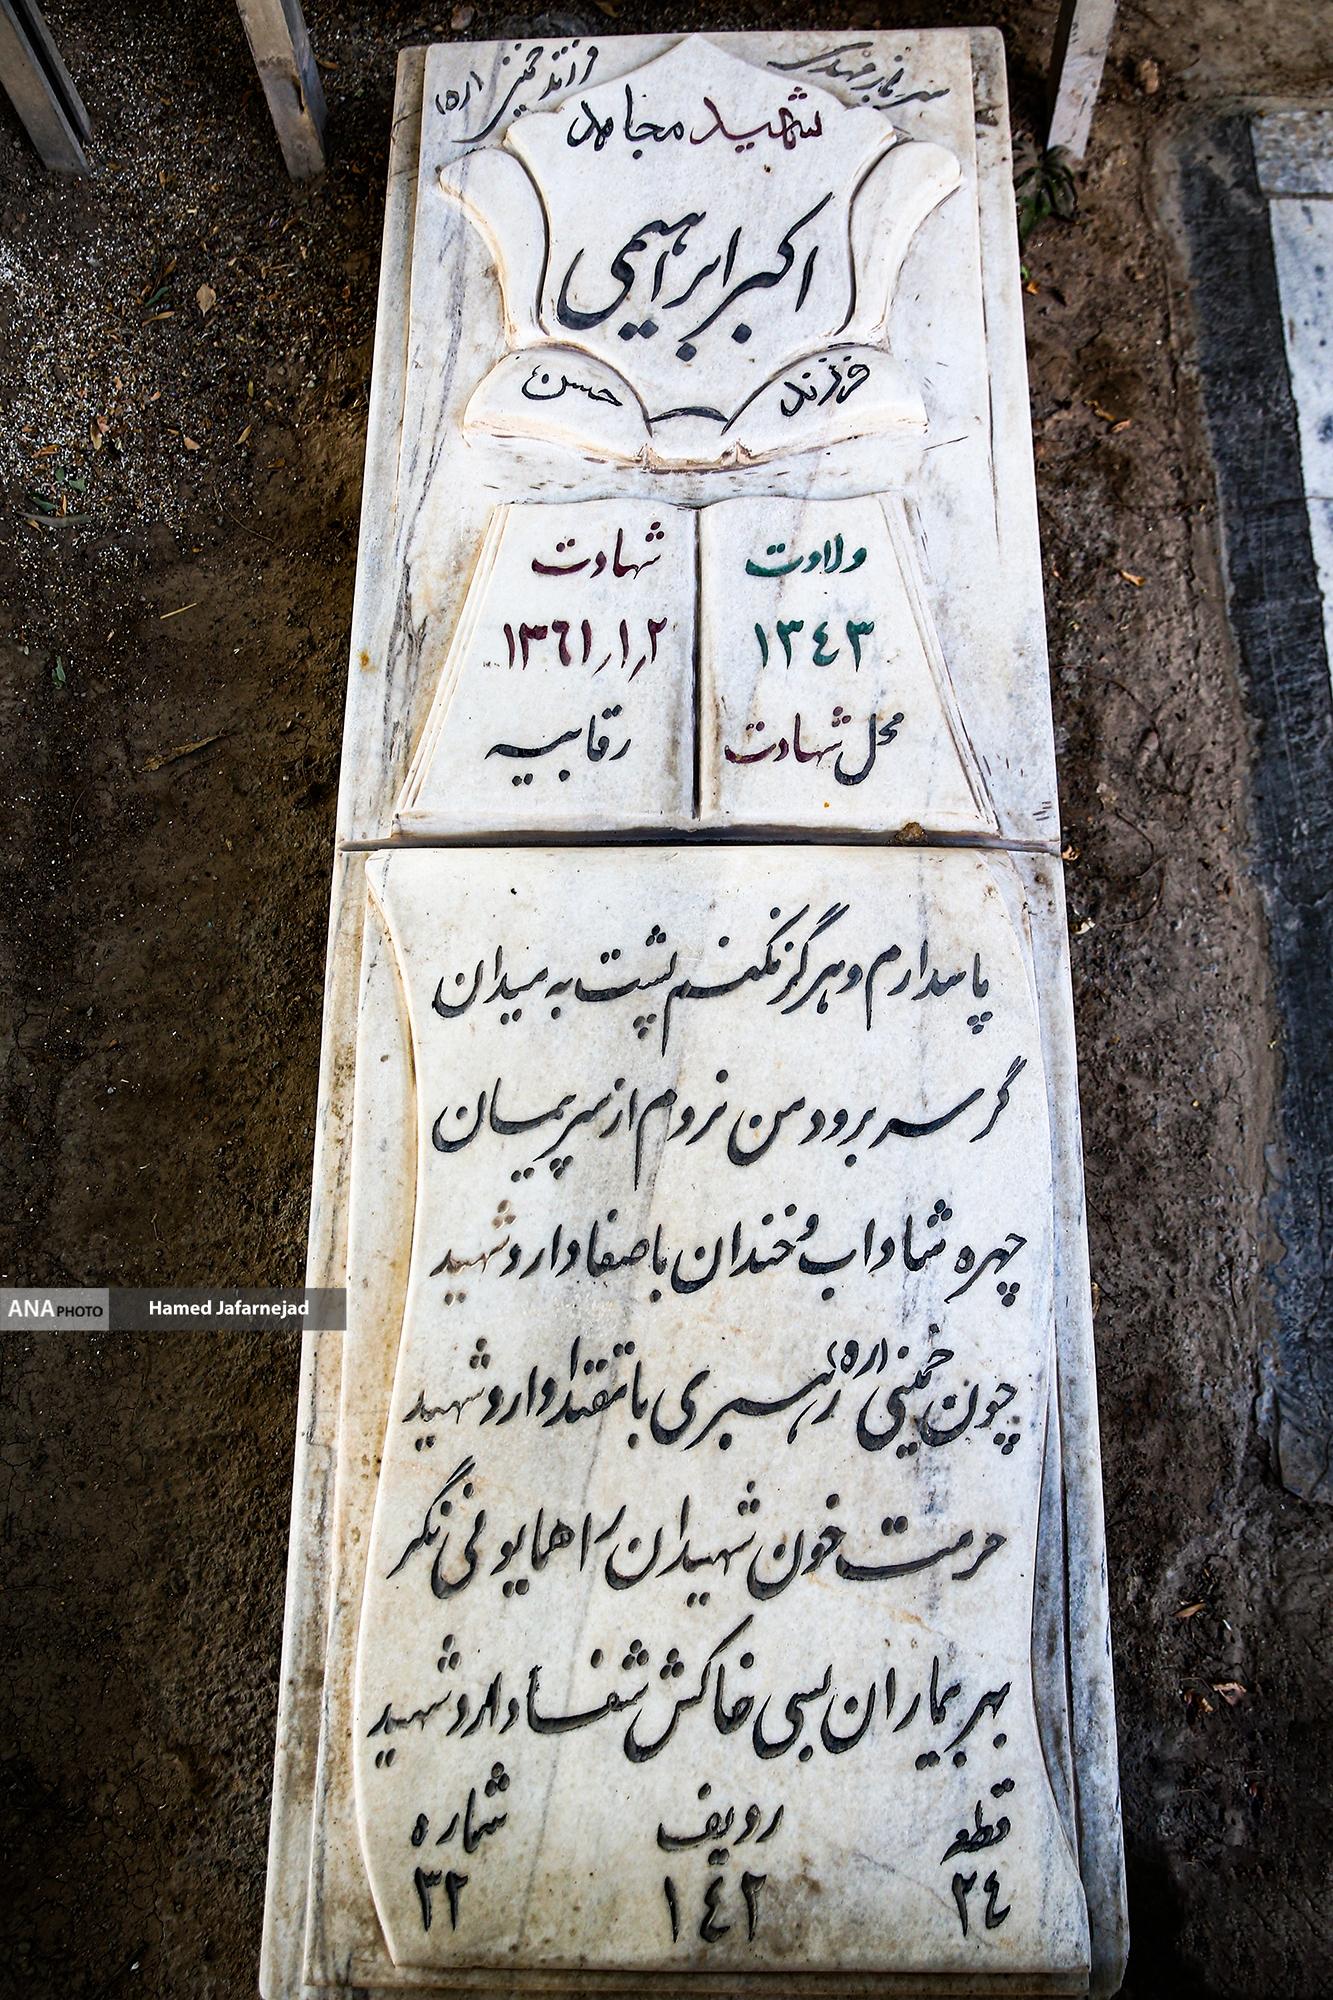 سرباز مهدی
فرزند خمینی (ره)
شهید مجاهد
اکبر ابراهیمی
فرزند حسن
ولادت
۱۳۴۳
شهادت
۱۳۶۱/۱/۲
محل شهادت
رقابیه
پاسدارم و هرگز نکنم پشت به میدان
گر سر برود من نروم از سر پیمان
چهره شاداب و خندان با صفا دارد شهید
چون خمینی (ره) رهبری با مقتدا دارد شهید
حرمت خون شهیدان را همایونی نگر
بهر بیماران بسی خاکش شفا دارد شهید
قطعه ردیف شماره
۲۴ ۱۴۲ ۳۲
ANA PHOTO Hamed Jafarnejad